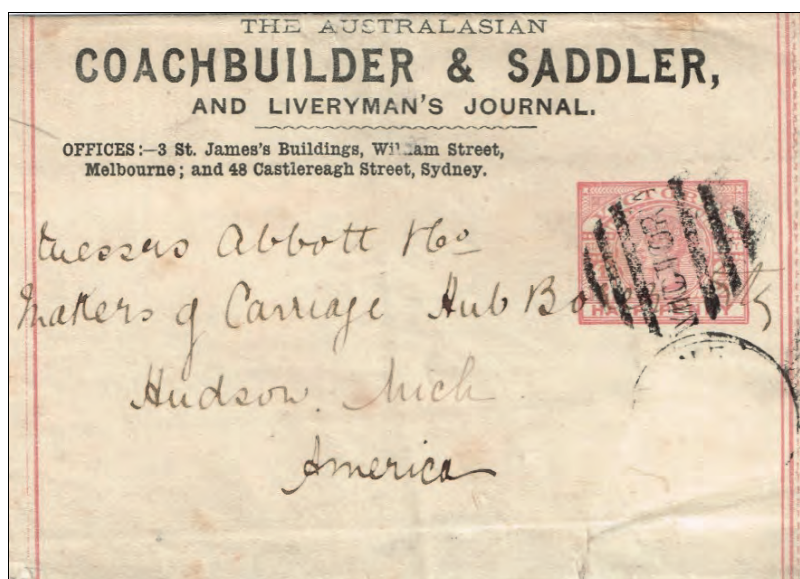 THE AUSTRALASIAN
COACHBUILDER & SADDLER,
AND LIVERYMAN'S JOURNAL.
OFFICES:—3 St. James's Buildings, William Street,
Melbourne; and 48 Castlereagh Street, Sydney.
VICTORIA
Messrs Abbott & Co
Makers of Carriage Hub
Hudson. Mich
America